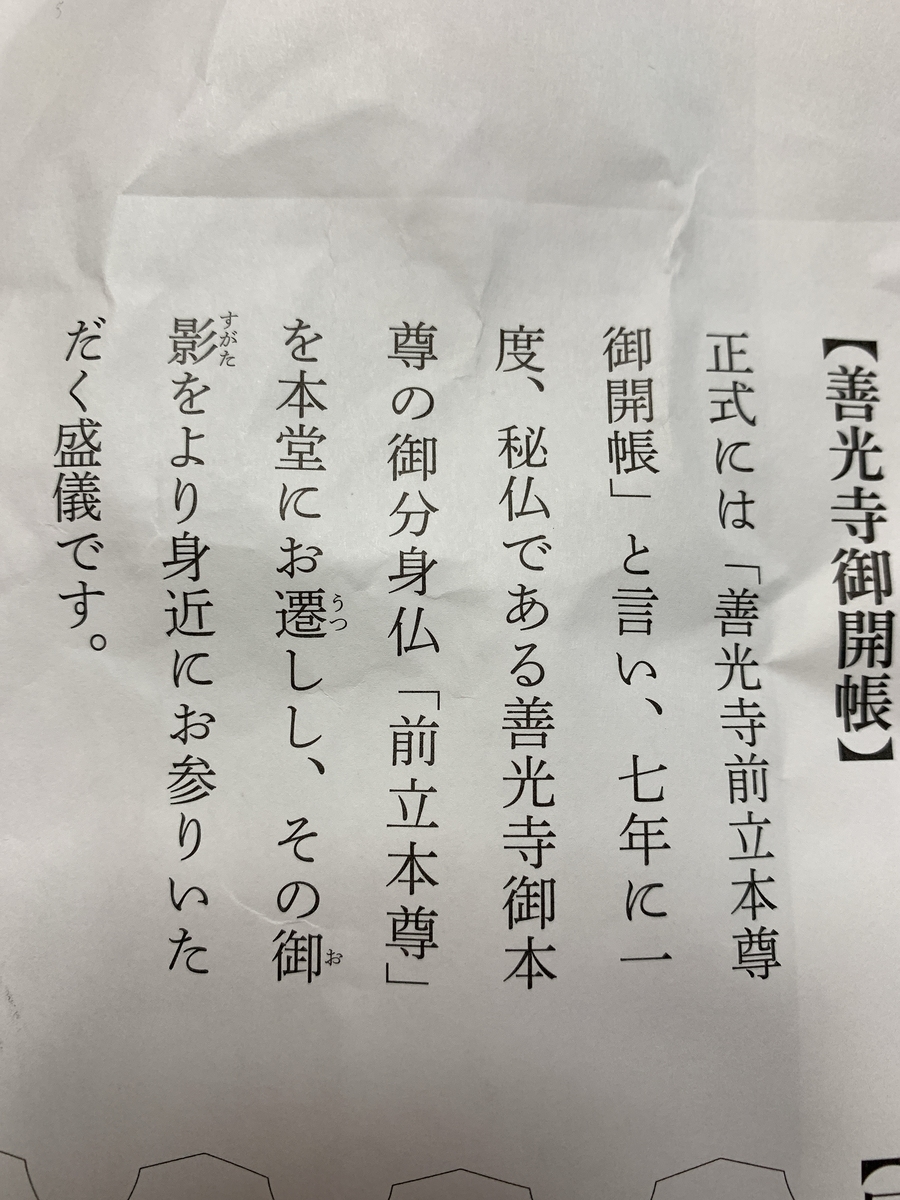 【善光寺御開帳】
正式には「善光寺前立本尊
御開帳」と言い、七年に一
度、秘仏である善光寺御本
尊の御分身仏「前立本尊」
を本堂にお遷しし、その御
うつ
お
影をより身近にお参りいた
すがた
だく盛儀です。
【